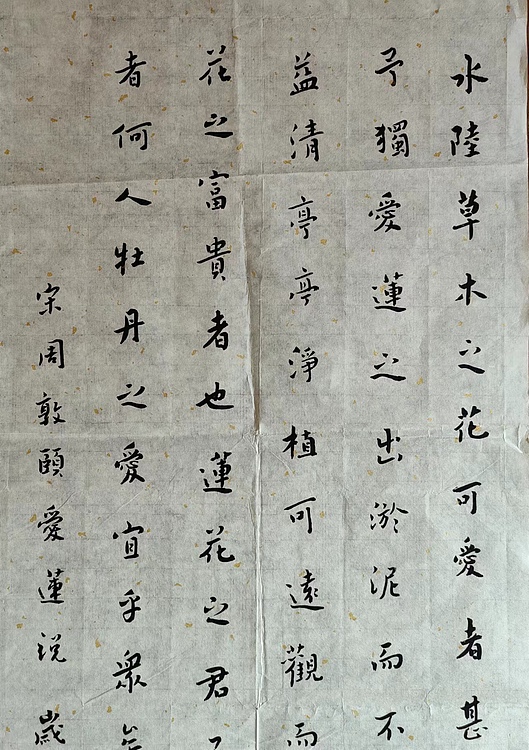 水陸草木之花可愛者甚
予獨愛蓮之出淤泥而不
益清亭亭淨植可遠觀而
花之富貴者也蓮花之君
者何人牡丹之愛宜乎衆
宋周敦頤愛蓮説歲